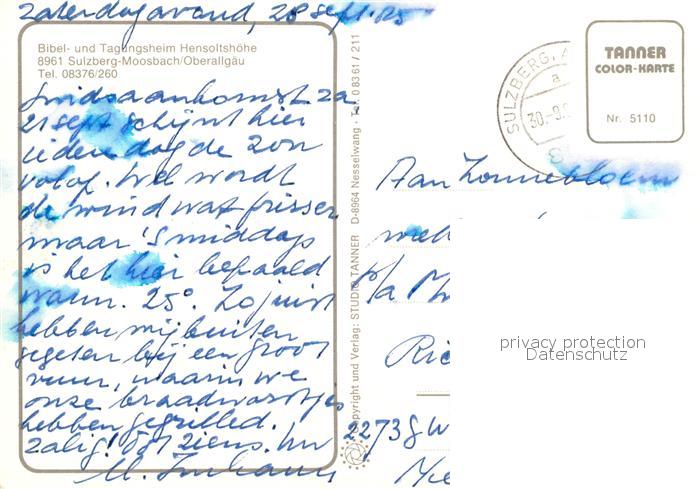 Zaterdagavond, 28 sept. 85
Bibel- und Tagungsheim Hensoltshöhe
8961 Sulzberg-Moosbach/Oberallgäu
Tel. 08376/260
Sindsaankomst za
21 sept schijnt hier
iedere dag de zon
volop. Wel wordt
de wind wat frisser
maar 's middags
is het hier bepaald
warm. 25°. Zojuist
hebben wij buiten
gegeten bij een groot
vuur, waarin we
onze braadworstjes
hebben gegrilled.
Zalig! Tot ziens. Uw
M.
Copyright und Verlag: STUDIO TANNER D-8964 Nesselwang · Tel. 08361/211
SULZBERG, A
a
30.-9.
TANNER
COLOR-KARTE
Nr. 5110
Aan Zonnebloem
p/a
2273 GW
privacy protection
Datenschutz